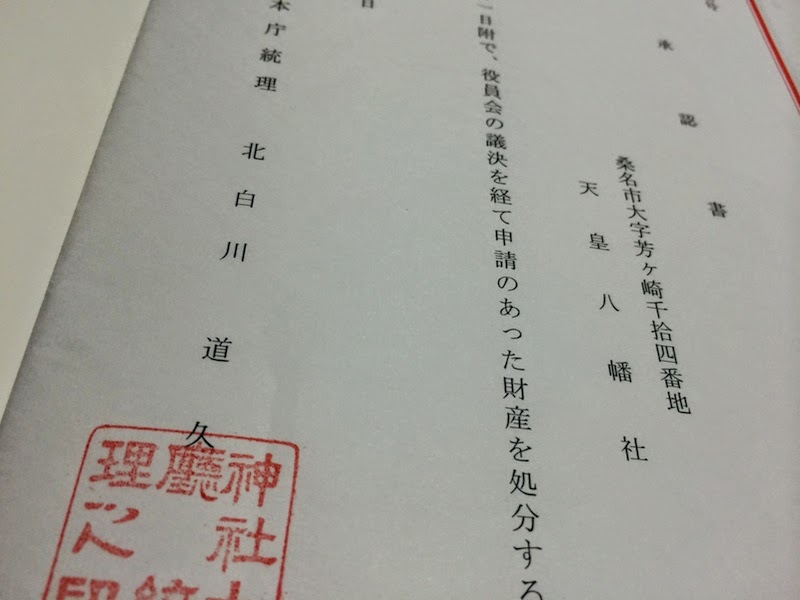 号
承認書
桑名市大字芳ヶ崎千拾四番地
天皇八幡社
一日附で、役員会の議決を経て申請のあった財産を処分する
日
本庁統理 北白川道久
神社
廳統
理之印